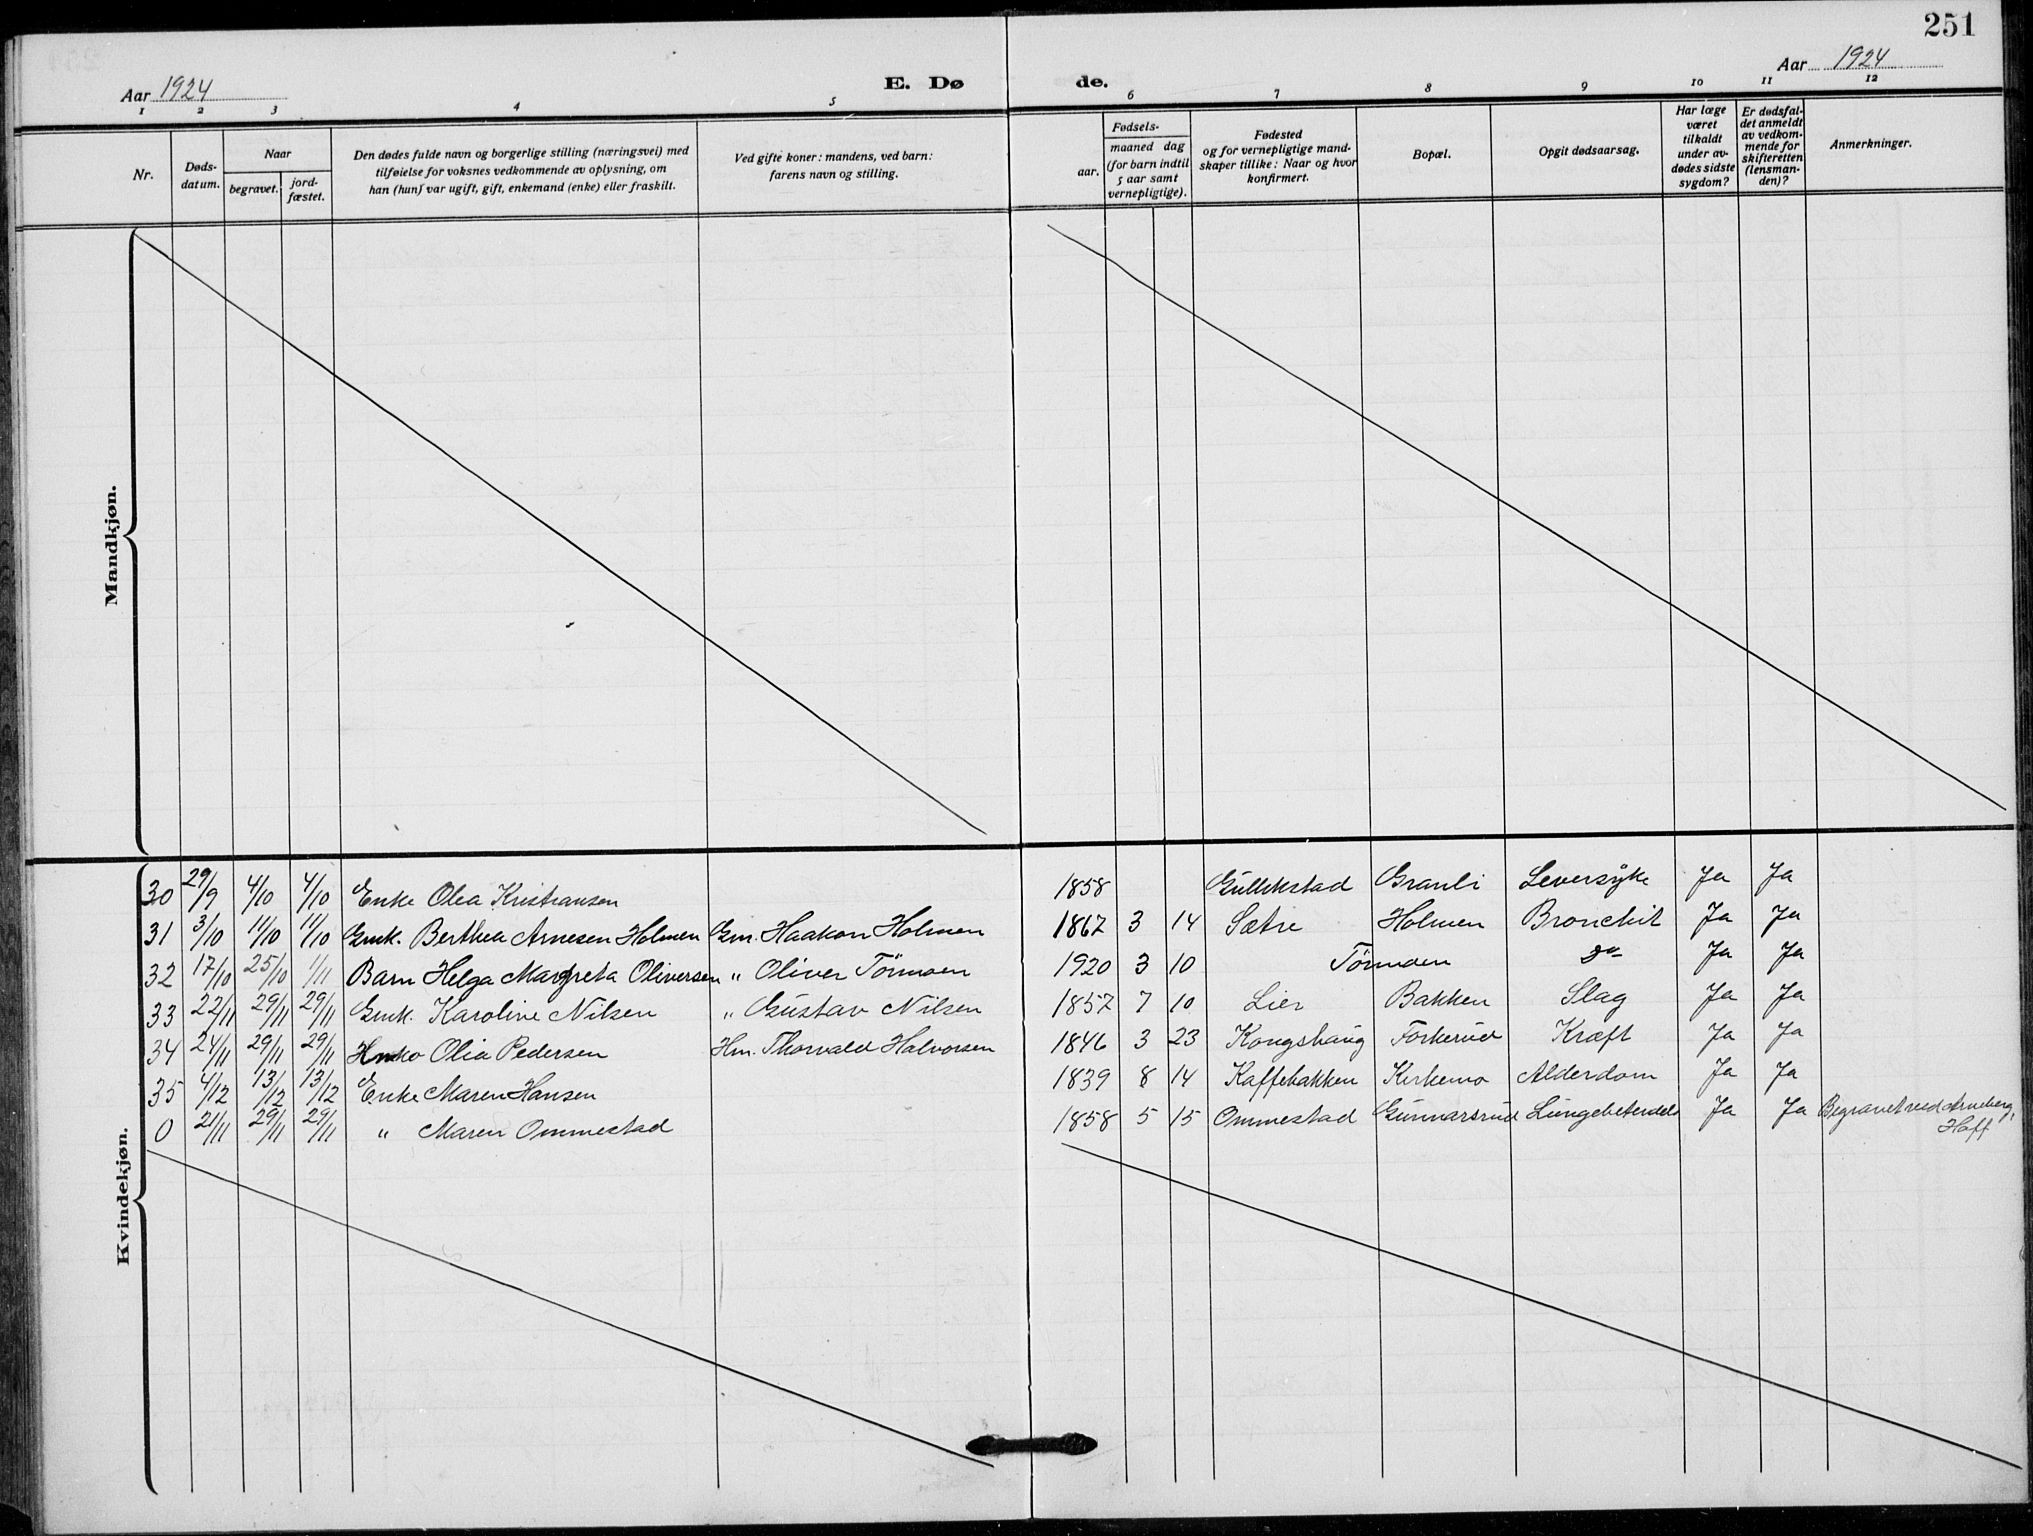 251
Aar 1924
E. Dø
de.
Aar 1924
1 2 3 4 5 6 7 8 9 10 11 12
Nr.
Døds-
datum.
Naar
begravet.
jord-
fæstet.
Den dødes fulde navn og borgerlige stilling (næringsvei) med
tilføielse for voksnes vedkommende av oplysning, om
han (hun) var ugift, gift, enkemand (enke) eller fraskilt.
Ved gifte koner: mandens, ved barn:
farens navn og stilling.
Fødsels-
aar.
maaned dag
(for barn indtil
5 aar samt
vernepligtige).
Fødested
og for vernepligtige mand-
skaper tillike: Naar og hvor
konfirmert.
Bopæl.
Opgit dødsaarsag.
Har læge
været
tilkaldt
under av-
dødes sidste
sygdom?
Er dødsfal-
det anmeldt
av vedkom-
mende for
skifteretten
(lensman-
den)?
Anmerkninger.
Mandkjøn.
Kvindekjøn.
30 29/9 4/10 4/10 Enke Olea Kristiansen 1858 Gullikstad Granli Leversyke Ja Ja
31 3/10 11/10 11/10 Gmk. Berthea Arnesen Holmen Gm. Haakon Holmen 1867 3 14 Sætre Holmen Bronchit Ja Ja
32 17/10 25/10 1/11 Barn Helga Margreta Oliversen " Oliver Törmoen 1920 3 10 Törmoen do Ja Ja
33 22/11 29/11 29/11 Gmk. Karoline Nilsen " Gustav Nilsen 1857 7 10 Lier Bakken Slag Ja Ja
34 24/11 29/11 29/11 Olia Pedersen Hm. Thorvald Halvorsen 1846 3 23 Kongshaug Förkerud Kræft Ja Ja
35 4/12 13/12 13/12 Enke Maren Hansen 1839 8 14 Kaffebakken Kirkemo Alderdom Ja Ja
0 21/11 29/11 29/11 " Maren Ommestad 1858 5 15 Ommestad Gunnarsrud Ja Ja Begravet ved Arneberg,
Hoff